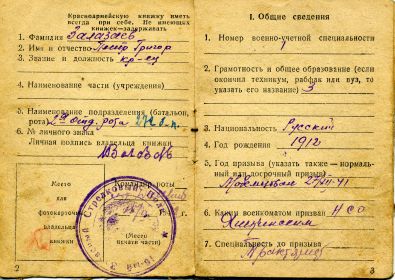 Красноармейскую книжку иметь
всегда при себе. Не имеющих
книжек—задерживать
1. Фамилия
2. Имя и отчество Григор
3. Звание и должность кр-ец
4. Наименование части (учреждения)
5. Наименование подразделения (батальон,
рота) рота
6. № личного знака
Личная подпись владельца книжки
Место
для
фотокарточки
владельца
книжки
Командир роты
(Место
печати части)
Стрелковый
2
I. Общие сведения
1. Номер военно-учетной специальности
1
2. Грамотность и общее образование (если
окончил техникум, рабфак или вуз, то
указать его название) 3
3. Национальность Русский
4. Год рождения 1912
5. Год призыва (указать также — нормаль-
ный или досрочный призыв)
6. Каким военкоматом призван НСО
7. Специальность до призыва
Тракторист
3